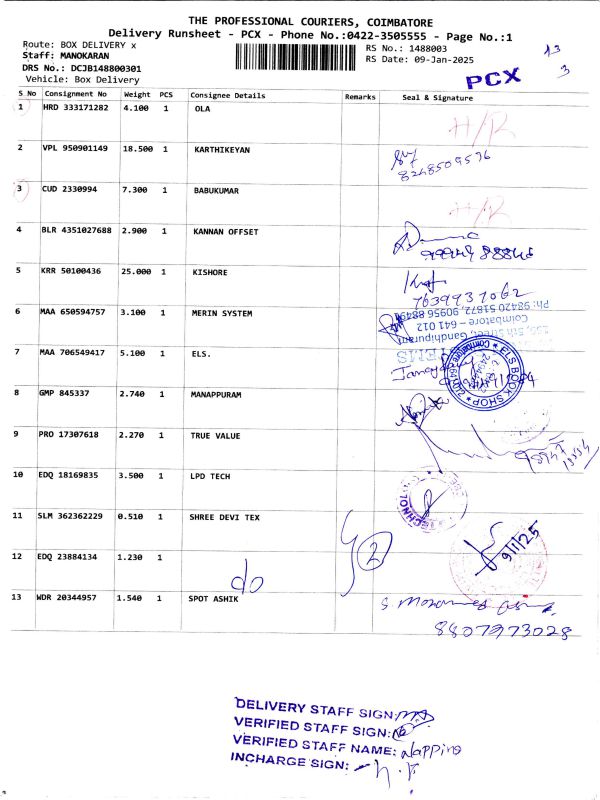 THE PROFESSIONAL COURIERS, COIMBATORE
Delivery Runsheet - PCX - Phone No.:0422-3505555 - Page No.:1
Route: BOX DELIVERY x
RS No.: 1488003
Staff: MANOKARAN
RS Date: 09-Jan-2025
DRS No.: DCJB148800301
Vehicle: Box Delivery
PCX
13
3
S No Consignment No Weight PCS Consignee Details Remarks Seal & Signature
1 HRD 333171282 4.100 1 OLA H/R
2 VPL 950901149 18.500 1 KARTHIKEYAN
8248509596
3 CUD 2330994 7.300 1 BABUKUMAR H/R
4 BLR 4351027688 2.900 1 KANNAN OFFSET
5 KRR 50100436 25.000 1 KISHORE
7639937062
6 MAA 650594757 3.100 1 MERIN SYSTEM
Ph: 98420 51872, 90956 88491
Coimbatore – 641 012
5th Street, Gandhipuram
7 MAA 706549417 5.100 1 ELS.
ELS BOOK SHOP
8 GMP 845337 2.740 1 MANAPPURAM
9 PRO 17307618 2.270 1 TRUE VALUE
10 EDQ 18169835 3.500 1 LPD TECH
11 SLM 362362229 0.510 1 SHREE DEVI TEX
2
9/1/25
12 EDQ 23884134 1.230 1
do
13 WDR 20344957 1.540 1 SPOT ASHIK
8807973028
DELIVERY STAFF SIGN:
VERIFIED STAFF SIGN:
VERIFIED STAFF NAME:
INCHARGE SIGN: